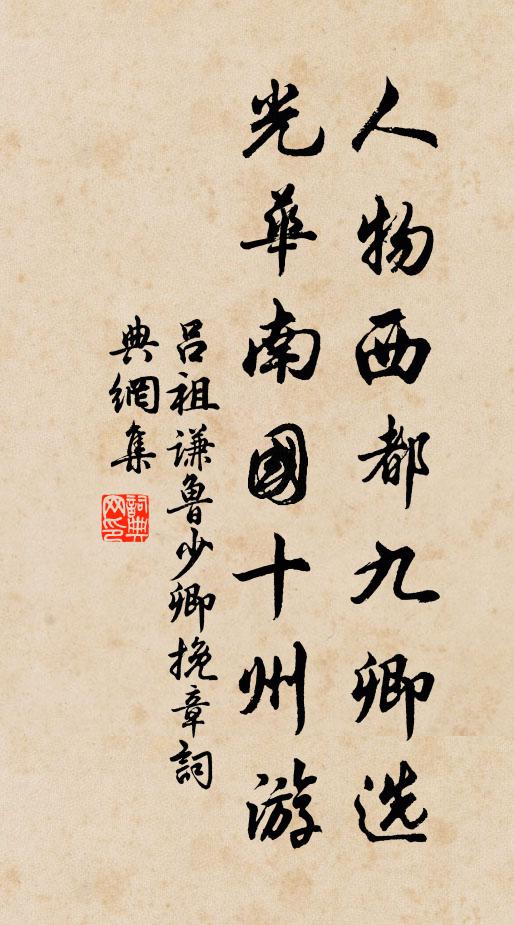 人物西都九卿选
光华南國十州游
吕祖谦魯少卿挽章詞
典網集
詞典網印